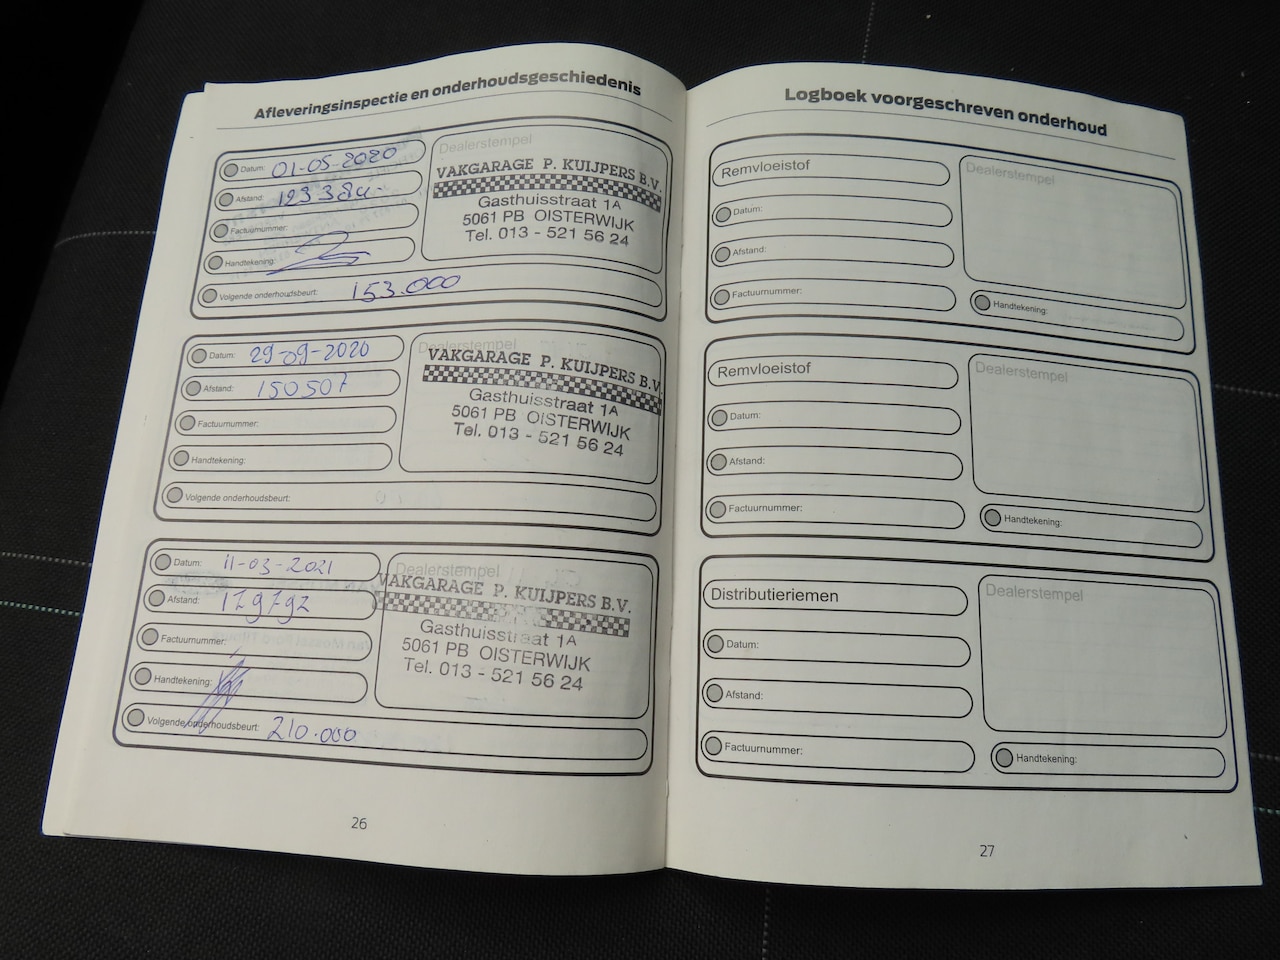 Afleveringsinspectie en onderhoudsgeschiedenis
Datum: 01-05-2020
Afstand: 123384-
Factuurnummer:
Handtekening:
Volgende onderhoudsbeurt: 153.000
Dealerstempel
VAKGARAGE P. KUIJPERS B.V.
Gasthuisstraat 1A
5061 PB OISTERWIJK
Tel. 013 - 521 56 24
Datum: 29-09-2020
Afstand: 150507
Factuurnummer:
Handtekening:
Volgende onderhoudsbeurt:
Dealerstempel
VAKGARAGE P. KUIJPERS B.V.
Gasthuisstraat 1A
5061 PB OISTERWIJK
Tel. 013 - 521 56 24
Datum: 11-03-2021
Afstand: 179792
Factuurnummer:
Handtekening:
Volgende onderhoudsbeurt: 210.000
Dealerstempel
VAKGARAGE P. KUIJPERS B.V.
Gasthuisstraat 1A
5061 PB OISTERWIJK
Tel. 013 - 521 56 24
26
Logboek voorgeschreven onderhoud
Remvloeistof
Datum:
Afstand:
Factuurnummer:
Dealerstempel
Handtekening:
Remvloeistof
Datum:
Afstand:
Factuurnummer:
Dealerstempel
Handtekening:
Distributieriemen
Datum:
Afstand:
Factuurnummer:
Dealerstempel
Handtekening:
27